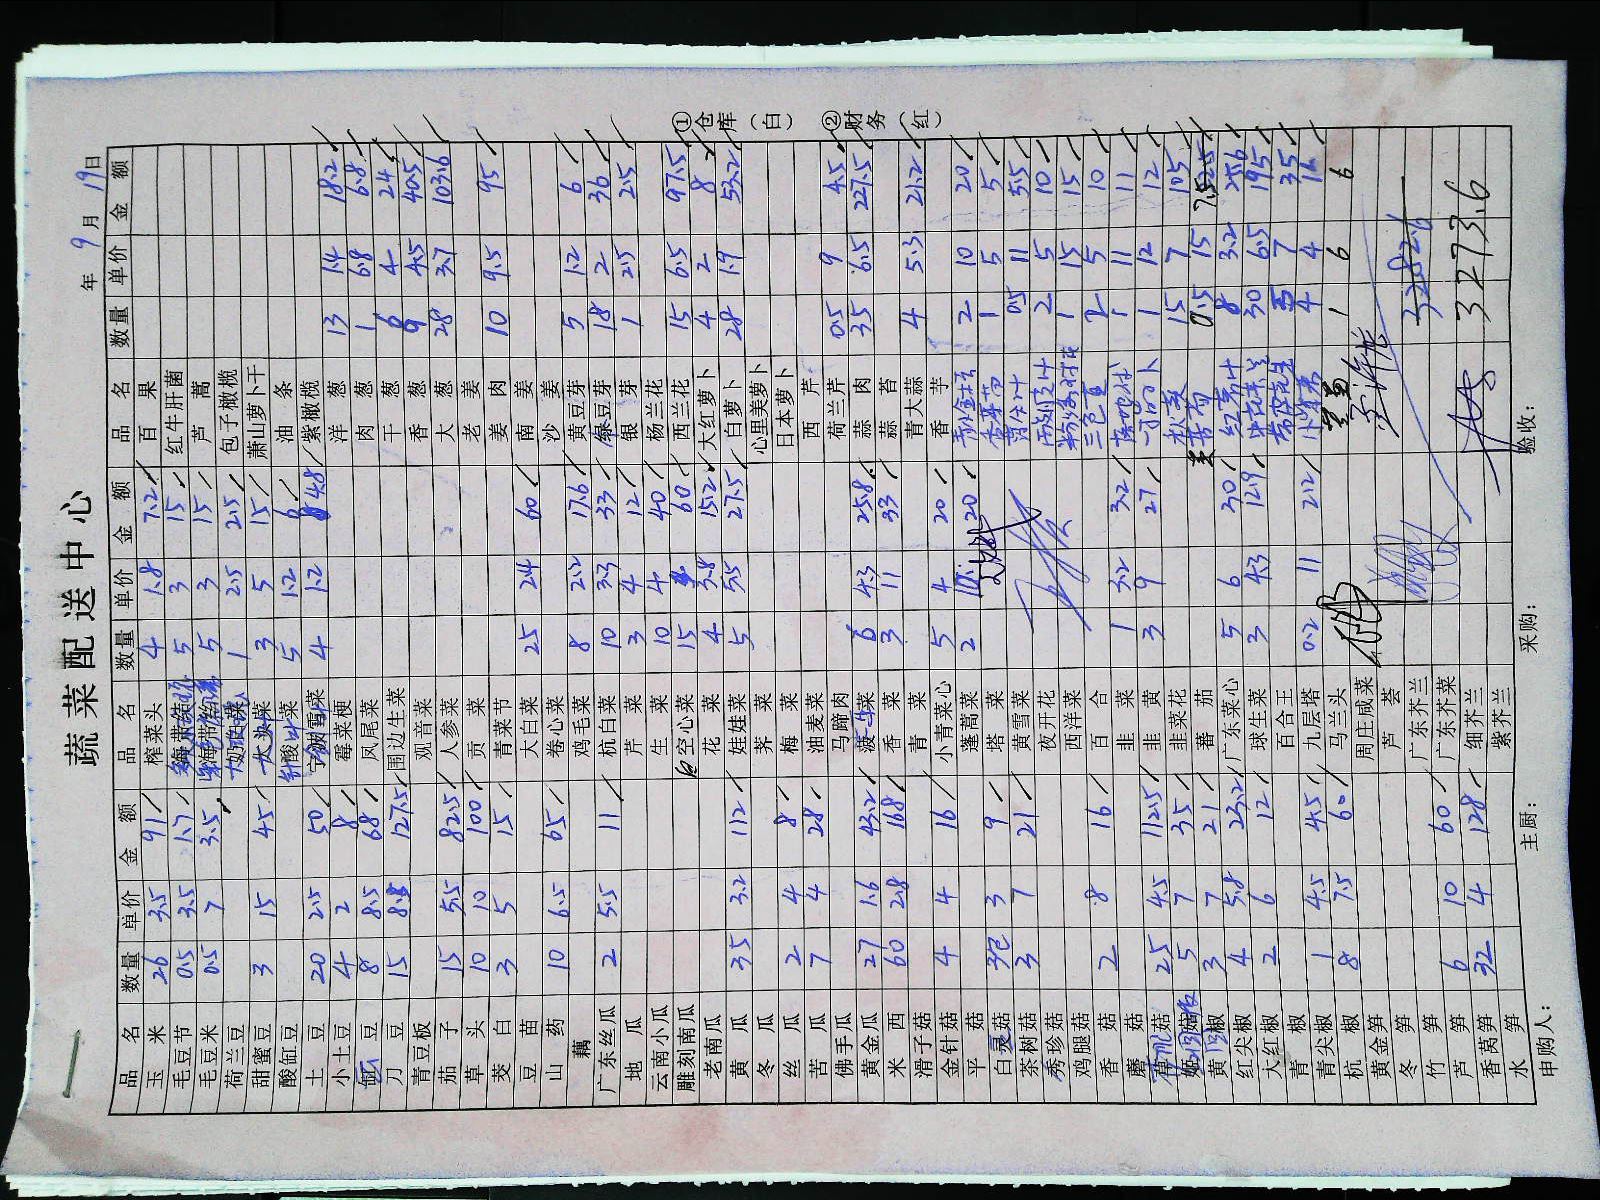 蔬菜配送中心
年 9 月 19 日
品名 数量 单价 金额 品名 数量 单价 金额 品名 数量 单价 金额
玉米 26 3.5 91 榨菜头 4 1.8 7.2 百果
毛豆节 0.5 3.5 1.7 海带结 5 3 15 红牛肝菌
毛豆米 0.5 7 3.5 海带丝 5 3 15 芦蒿
荷兰豆 1 25 25 包子橄榄
甜蜜豆 3 15 45 大头菜 3 5 15 萧山萝卜干
酸缸豆 酸菜 5 1.2 6 油条
土豆 20 2.5 50 宁波雪菜 4 1.2 4.8 紫橄榄
小土豆 4 2 8 霉菜梗 洋葱 13 1.4 18.2
豆 8 8.5 68 凤尾菜 肉葱 1 6.8 6.8
刀豆 15 8.5 127.5 围边生菜 干葱 6 4 24
青豆板 观音菜 香葱 9 4.5 40.5
茄子 15 5.5 82.5 人参菜 大葱 28 3.7 103.6
草头 10 10 100 贡菜 老姜
茭白 3 5 15 青菜节 姜肉 10 9.5 95
豆苗 大白菜 25 2.4 60 南姜
山药 10 6.5 65 卷心菜 沙姜
藕 鸡毛菜 8 2.2 17.6 黄豆芽 5 1.2 6
广东丝瓜 2 5.5 11 杭白菜 10 3.3 33 绿豆芽 18 2 36
地瓜 芹菜 3 4 12 银芽 1 2.5 2.5
云南小瓜 生菜 10 4 40 杨兰花
雕刻南瓜 空心菜 15 4 60 西兰花 15 6.5 97.5
老南瓜 花菜 4 3.8 15.2 大红萝卜 4 2 8
黄瓜 35 3.2 112 娃娃菜 5 5.5 27.5 白萝卜 28 1.9 53.2
冬瓜 荠菜 心里美萝卜
丝瓜 2 4 8 梅菜 日本萝卜
苦瓜 7 4 28 油麦菜 西芹
佛手瓜 马蹄肉 荷兰芹 0.5 9 4.5
黄金瓜 27 1.6 43.2 菠菜 6 4.3 25.8 蒜肉 35 6.5 227.5
米西 60 2.8 168 香菜 3 11 33 蒜苔
滑子菇 青菜 青大蒜 4 5.3 21.2
金针菇 4 4 16 小青菜心 5 4 20 香芋
平菇 蓬蒿菜 2 10 20 2 10 20
白灵菇 3包 3 9 塔菜 1 5 5
茶树菇 3 7 21 黄雪菜 0.5 11 5.5
秀珍菇 夜开花 2 5 10
鸡腿菇 西洋菜 1 15 15
香菇 2 8 16 百合 三色堇 2 5 10
蘑菇 韭菜 1 3.2 3.2 1 11 11
菇 25 4.5 112.5 韭黄 3 9 27 1 12 12
5 7 35 韭菜花 15 7 105
黄圆椒 3 7 21 蕃茄 0.5 15 7.5
红尖椒 4 5.8 23.2 广东菜心 5 6 30 8 3.2 25.6
大红椒 2 6 12 球生菜 3 4.3 12.9 30 6.5 195
青椒 百合王 5 7 35
青尖椒 1 4.5 4.5 九层塔 0.2 11 2.2 4 4 16
杭椒 8 7.5 60 马兰头 1 6 6
黄金笋 周庄咸菜
冬笋 芦荟
竹笋 广东芥兰
芦笋 6 10 60 广东芥菜
香莴笋 32 4 128 细芥兰 3273.6
水笋 紫芥兰
申购人： 主厨： 采购： 验收：
①仓库（白） ②财务（红）